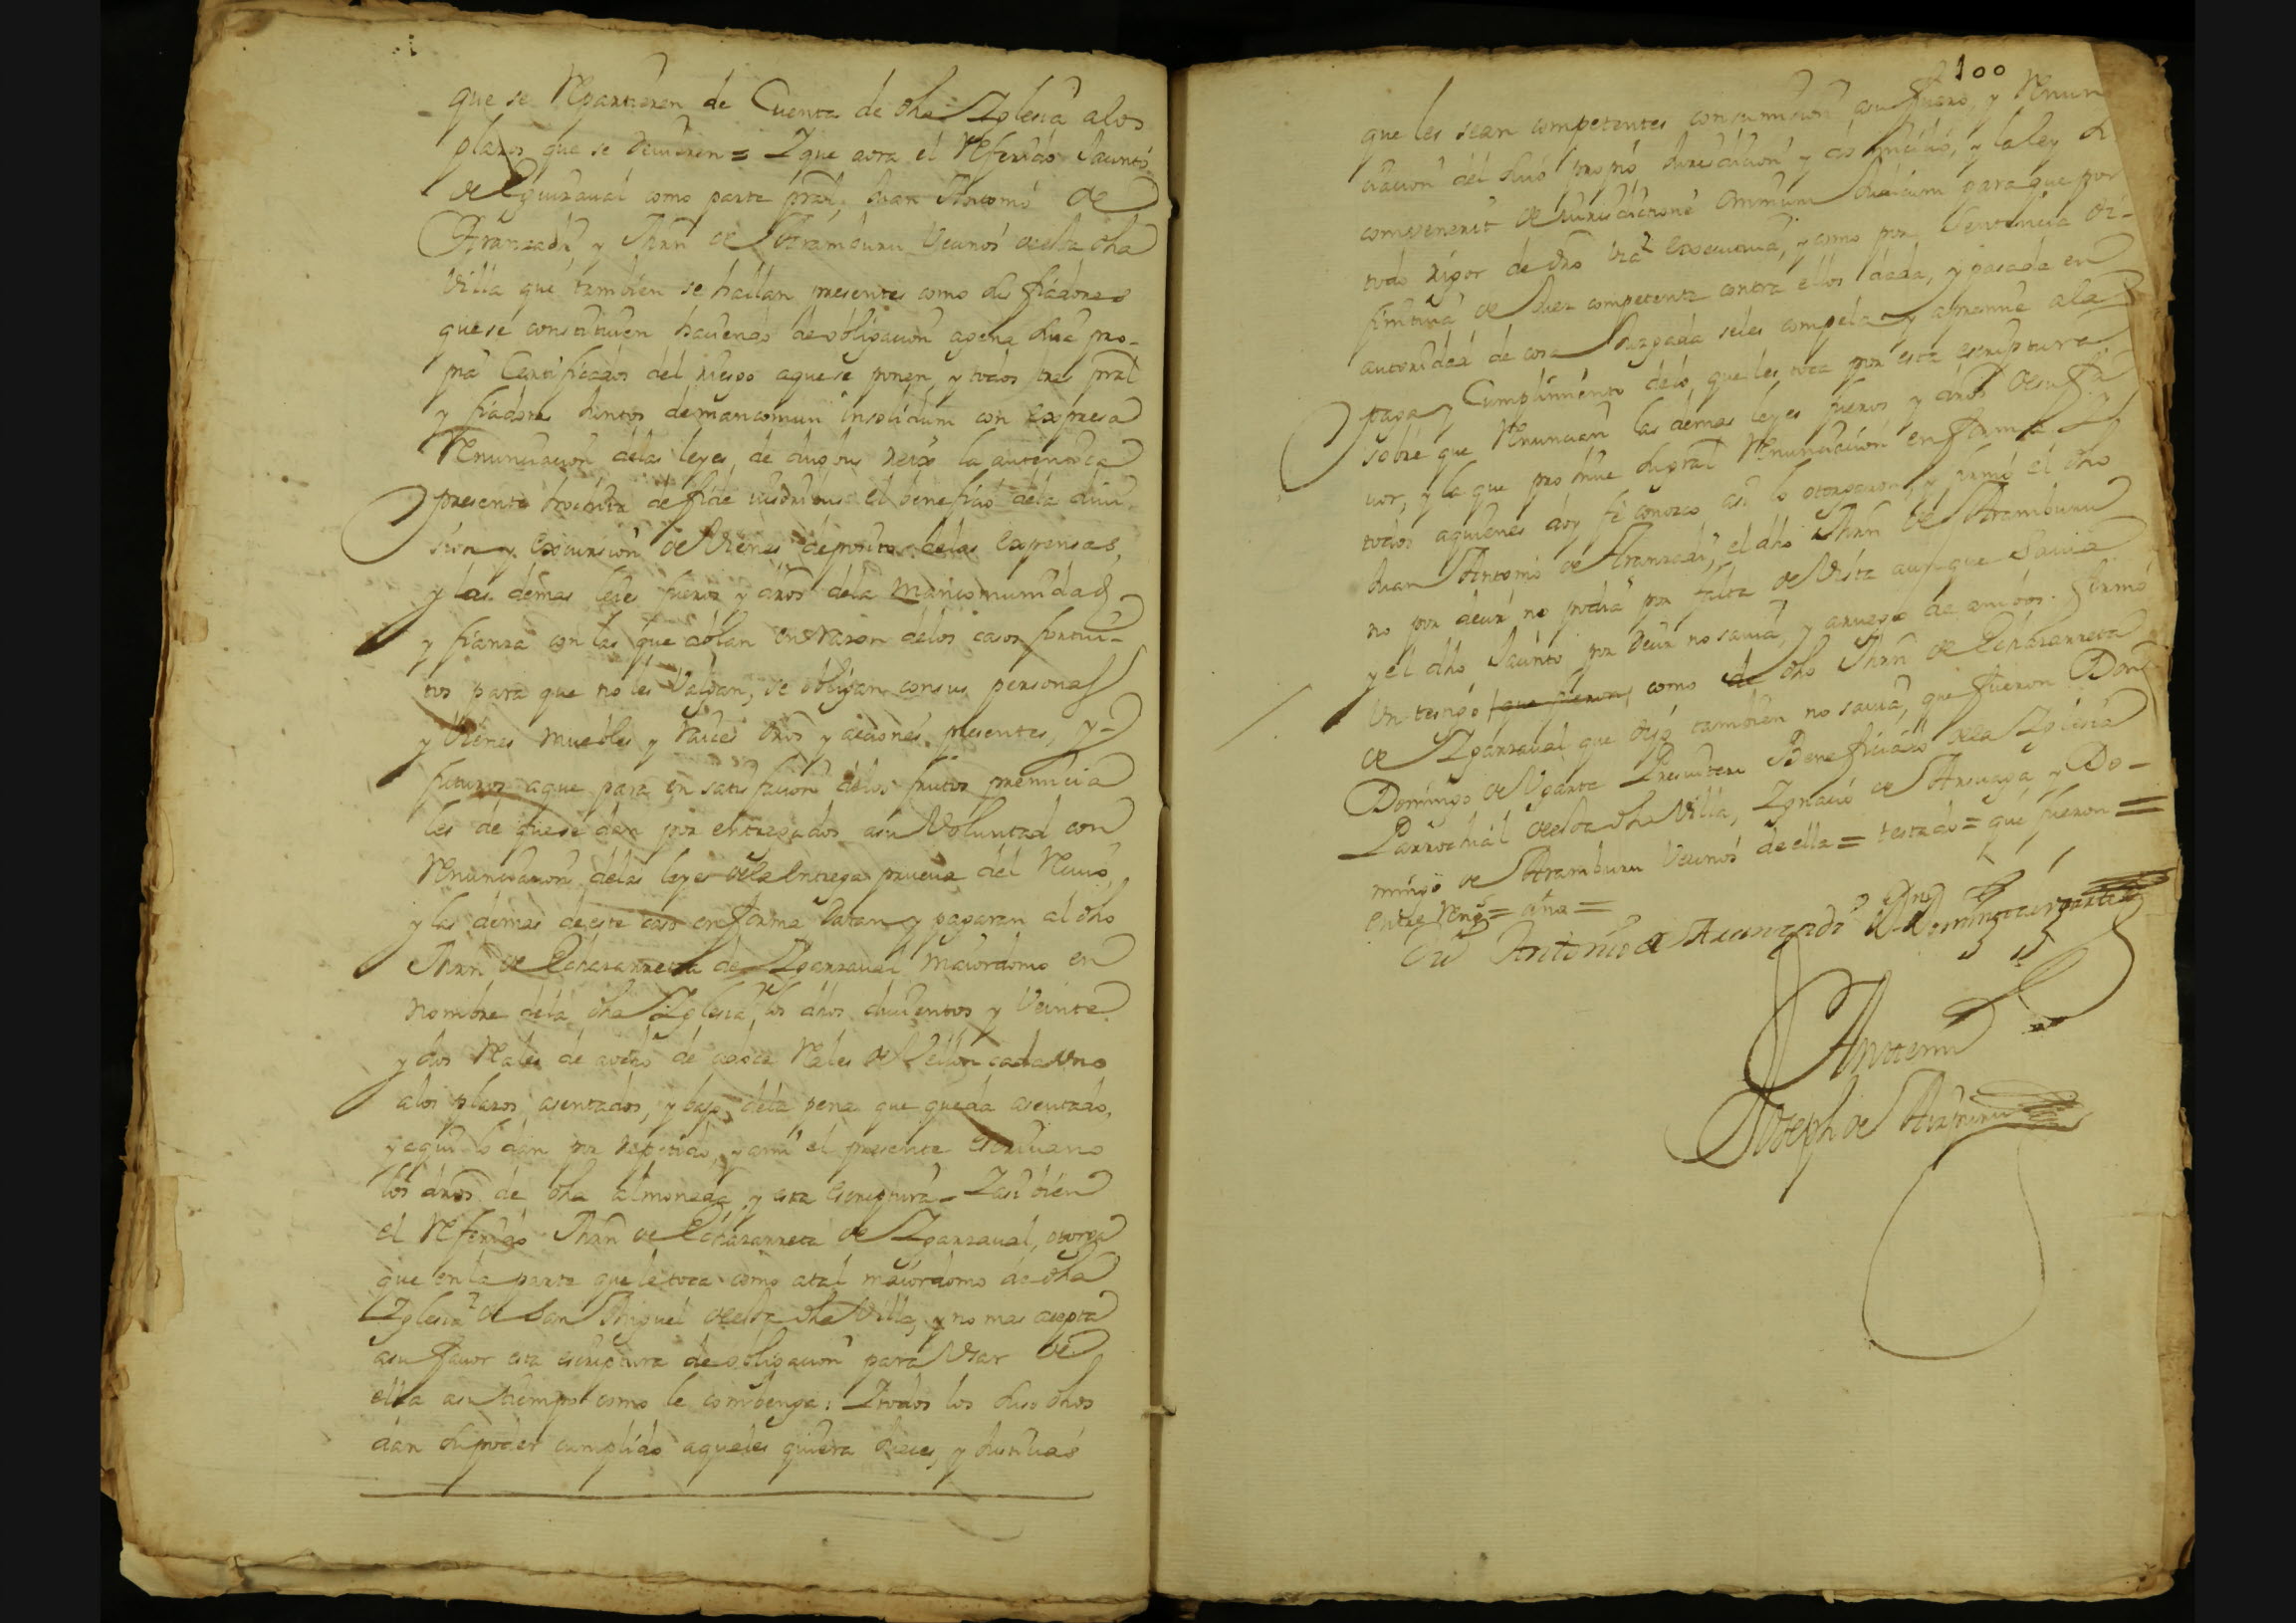 que se Repartieren de Cuenta de dha Iglesia alos
plazos que se devieren = Y que aora el Referido Jacinto
de Eguizaval como parte prãl. Juan Antonio de
Aranzadi, y Mrñ de Aramburu Vecinos de esta dha
Villa que tambien se hallan presentes como sus fiadores
que se constituien haciendo de obligacion agena suia pro-
pia Certificados del riesgo aque se ponen, y todos tres prãl
y fiadores Juntos demancomun insolidum con expresa
Renunciacion delas leyes de duobus reis la autentica
presente hocita de fide iusoribus el beneficio dela divi
sion y excursion de Vienes deposito delas expensas,
y las demas leies fueros y dros dela mancomunidad
y fianza con las que ablan en razon delos casos fortui-
tos para que no les Valgan, se obligan consus personas
y Vienes muebles y raices dros y acciones presentes, y
futuros aque para en satisfacion delos frutos premicia
les de que se dan por entregados asu Voluntad con
Renunciacion delas leyes dela entrega prueva del Recivo,
y las demas de este caso en forma daran y pagaran al dho
Mrñ de Echazarreta de Ygarzaval maiordomo en
nombre dela dha Iglesia, los dhos ducientos y Veinte
y dos Reales de avocho de a doce Reales de Vellon cada uno
alos plazos asentados, y bajo dela pena que queda asentado,
y aqui lo dan por repetido, y ami el presente escrivano
los dros de dha almoneda, y esta escriptura = Y asi bien
el Referido Mrñ de Echazarreta de Ygarzaval, otorga
que en la parte que le toca como atal maiordomo de dha
Iglesia de San Miguel de esta dha Villa, y no mas acepta
asu favor esta escriptura de obligacion para Usar de
ella asu tiempo como le combenga: Y todos los suso dhos
dan su poder cumplido aquales quiera Jueces, y Justicias
100
que les sean competentes consumision asu fuero, y Renun
ciacion del suio propio, Jurisdicion y domicilio, y la ley si
convenerit de Jurisdictione Omnium Judicum para que por
todo rigor de dro via executiva, y como por Sentencia di-
finitiva de Juez competente contra ellos dada, y pasada en
autoridad de cosa Juzgada se les compela y apremie ala
paga y Cumplimiento delo que les toca por esta escriptura
sobre que Renuncian las demas leyes fueros y dros de su fa
vor, y la que prohive la gral Renunciacion en forma y
todos aquienes doy fe conozco asi lo otorgaron, y firmo el dho
Juan Antonio de Aranzadi, el dho Mrñ de Aramburu
no por decir no podia por falta de Vista aunque savia
y el dho Jacinto por decir no savia, y aruego de ambos firmo
Un testigo que fueron como de dho Mrñ de Echazarreta
de Ygarzaval que dijo tambien no savia, que fueron Don
Domingo de Ugarte Presvitero Beneficiado dela Iglesia
Parrochial de esta dha Villa, Ygnacio de Arsuaga, y Do-
mingo de Aramburu Vecinos de ella = testado = que fueron =
Entre Rengs =
Jun Antonio de Aranzadi Dn Domingo de Ugarte
Antemi
Joseph de Aramburu